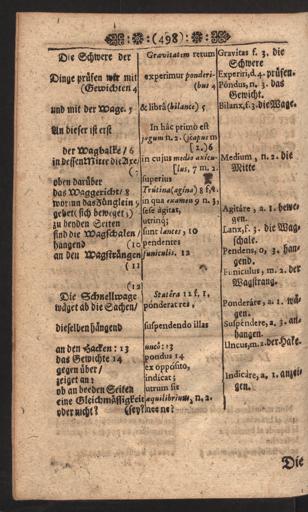 (498)
Die Schwere der
Dinge prüfen wir mit
(Gewichten 4
und mit der Wage. 5
An dieser ist erst
der Wagbalke / 6
in dessen Mitte die Axe/
(7
oben darüber
das Waggericht / 8
worinn das Zünglein 9
gehet (sich beweget)
zu beyden Seiten
sind die Wagschalen /
hangend (10
an den Wagsträngen
(11
(12
Die Schnellwage
wäget ab die Sachen /
dieselben hängend
an den Hacken: 13
das Gewichte 14
gegen über /
zeiget an:
ob an beeden Seiten
eine Gleichmässigkeit
oder nicht? (sey?
Gravitatem rerum
experimur ponderi-
(bus 4
& librâ (bilance) 5
In hac primò est
jugum n. 2. (scapus m
[2.) 6
in cujus medio axicu-
[lus, 7 m. 2.
superius
Trutina (agina) 8 f. 1.
in qua examen 9 n. 3.
sese agitat,
utrinq;
sunt lances, 10
pendentes
funiculis. 12
Statêra 12 f. 1.
ponderat res,
suspendendo illas
uncô: 13
pondus 14
ex opposito,
indicat;
utrum sit
æquilibrium, n. 2.
nec ne?
Gravitas f. 3. die
Schwere
Experiri, d. 4. prüfen.
Pondus, n. 3. das
Gewicht.
Bilanx, f. 3. die Wage.
Medium, n. 2. die
Mitte
Agitáre, a. 1. bewe-
gen.
Lanx, f. 3. die Wag-
schale.
Pendens, o, 3. han-
gend.
Funiculus, m. 2. der
Wagstrang.
Ponderáre, a. 1. wä-
gen.
Suspéndere, a. 3. an-
hangen.
Uncus, m. 2. der Hake.
Indicáre, a, 1. anzei-
gen.
Die